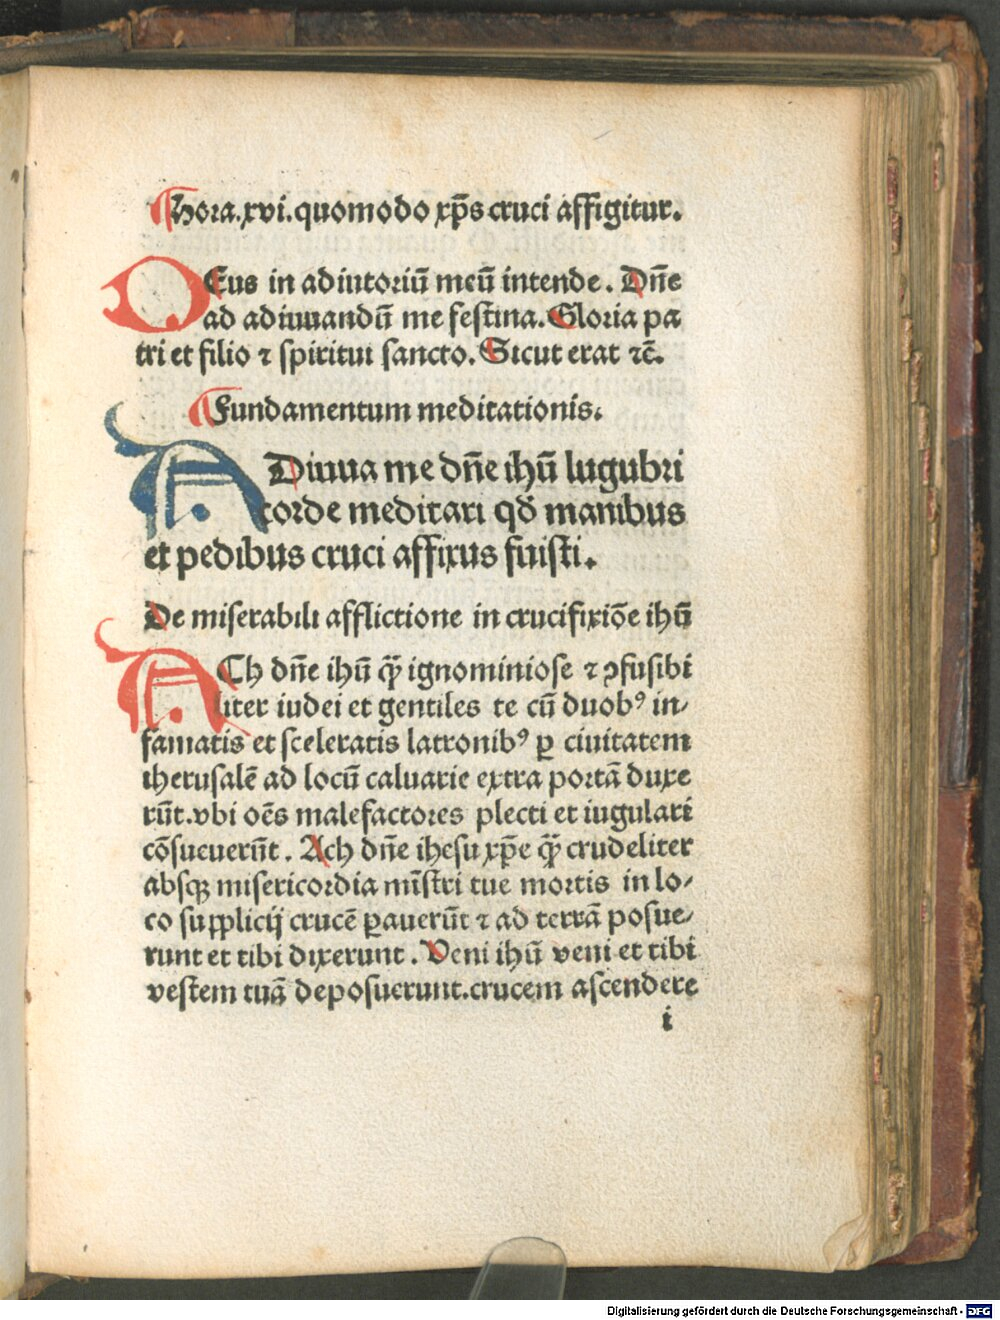 ¶hora.xvi.quomodo xp̄s cruci affigitur.
DEus in adiutoriū meū intende. Dn̄e
ad adiuuandū me festina. Gloria pa
tri et filio ⁊ spiritui sancto. Sicut erat ⁊c̄.
¶Fundamentum meditationis.
ADiuua me dn̄e ihū lugubri
corde meditari qđ manibus
et pedibus cruci affixus fuisti.
De miserabili afflictione in crucifixiōe ihū
ACh dn̄e ihū q̄ꝫ ignominiose ⁊ ꝯfusibi
liter iudei et gentiles te cū duobꝰ in⸗
famatis et sceleratis latronibꝰ ꝑ ciuitatem
iherusalē ad locū caluarie extra portā duxe
rūt.vbi oēs malefactores plecti et iugulari
cōsueuerūt. Ach dn̄e ihesu xp̄e q̄ꝫ crudeliter
absqꝫ misericordia mīstri tue mortis in lo⸗
co supplicij crucē ꝑauerūt ⁊ ad terrā posue⸗
runt et tibi dixerunt. Veni ihū veni et tibi
vestem tuā deposuerunt.crucem ascendere
i
Digitalisierung gefördert durch die Deutsche Forschungsgemeinschaft - DFG